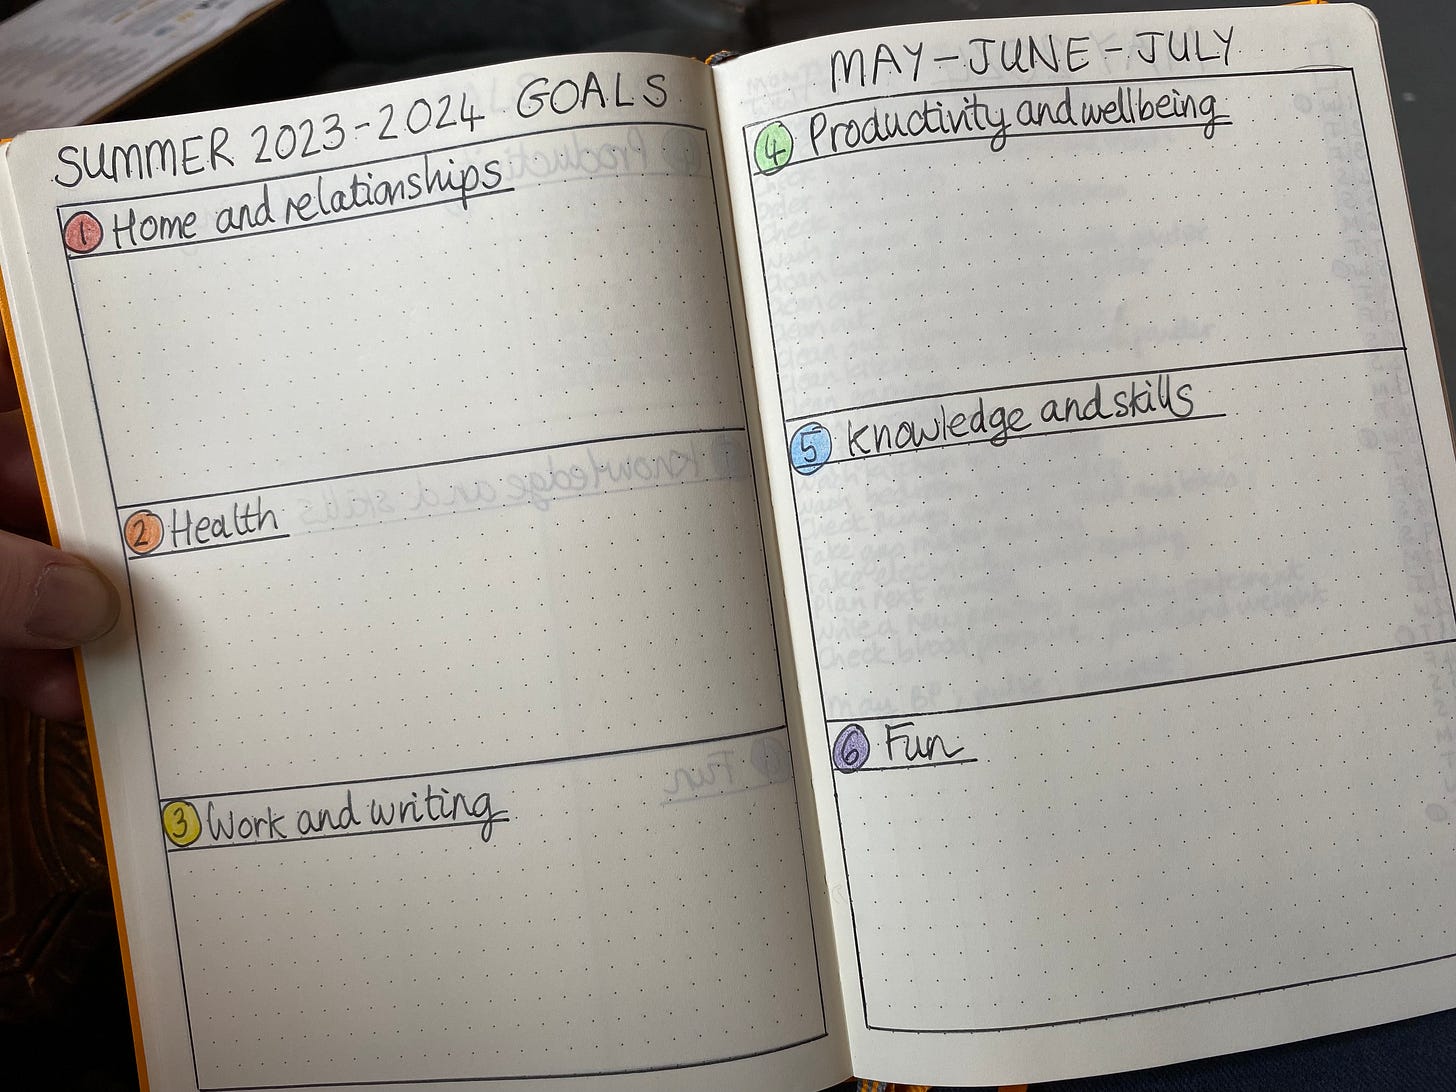 SUMMER 2023-2024 GOALS
1 Home and relationships
2 Health
3 Work and writing
MAY-JUNE-JULY
4 Productivity and wellbeing
5 Knowledge and skills
6 Fun